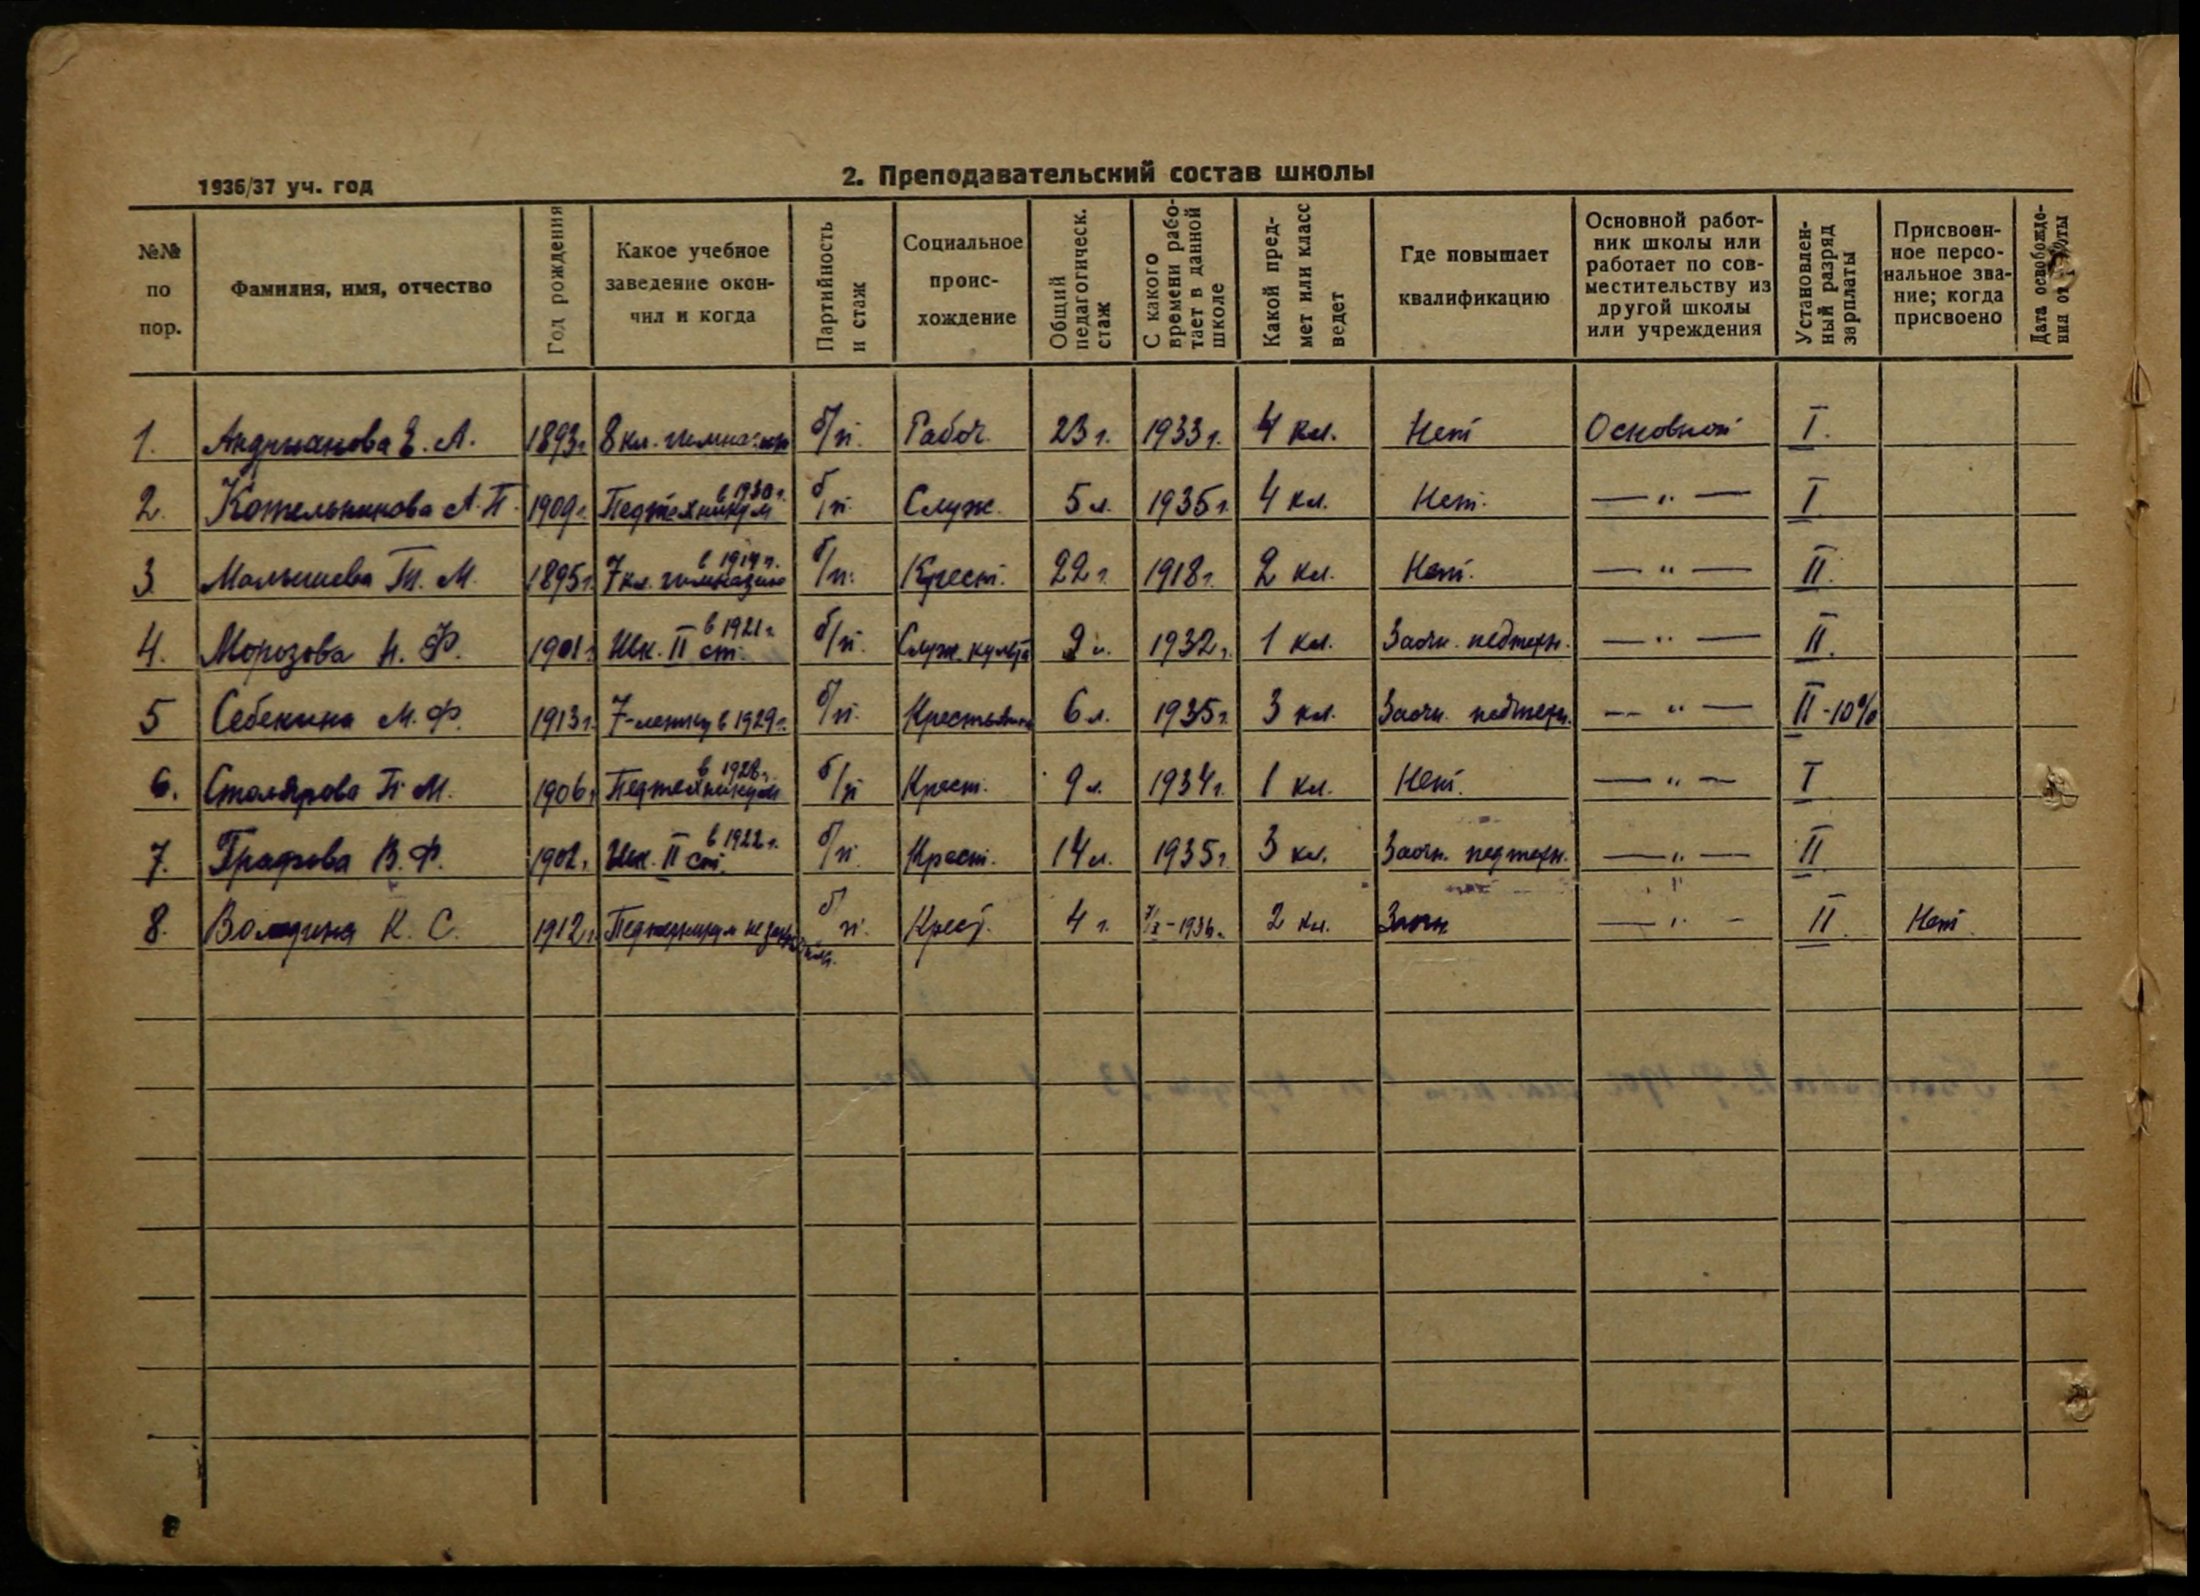 1936/37 уч. год
2. Преподавательский состав школы
№№ по пор.
Фамилия, имя, отчество
Год рождения
Какое учебное заведение окончил и когда
Партийность и стаж
Социальное проис-хождение
Общий педагогическ. стаж
С какого времени рабо-тает в данной школе
Какой пред-мет или класс ведет
Где повышает квалификацию
Основной работ-ник школы или работает по сов-местительству из другой школы или учреждения
Установлен-ный разряд зарплаты
Присвоен-ное персо-нальное зва-ние; когда присвоено
Дата освобожде-ния от
1. Андрианова Е. А. 1893г 8 кл. б/п. Рабоч. 23 г. 1933 г. 4 кл. Нет Основной I.
2. Котельникова А. П. 1909г. Педтехникум в 1930 г. б/п. Служ. 5 л. 1935 г. 4 кл. Нет. — " — I
3 Малышева Т. М. 1895г. 7 кл. гимназии в 1914 г. б/п. Крест. 22 г. 1918 г. 2 кл. Нет. — " — II.
4. Морозова Н. Ф. 1901г. Шк. II ст. в 1921 г. б/п. Служ. 9 л. 1932 г. 1 кл. Заочн. педтехн. — " — II.
5 Себекина М. Ф. 1913г. 7-летку в 1929 г. б/п. 6 л. 1935 г. 3 кл. Заочн. педтехн. — " — II -10%
6. Столярова П. М. 1906г Педтехникум в 1928 г. б/п Крест. 9 л. 1934 г. 1 кл. Нет. — " — I
7. Графова В. Ф. 1902г. Шк. II ст. в 1922 г. б/п. Крест. 14 л. 1935 г. 3 кл. Заочн. педтехн. — " — II
8. Володина К. С. 1912г. Педтехникум не б/п. Крест. 4 г. 2 кл. Заочн — " — II. Нет.
8